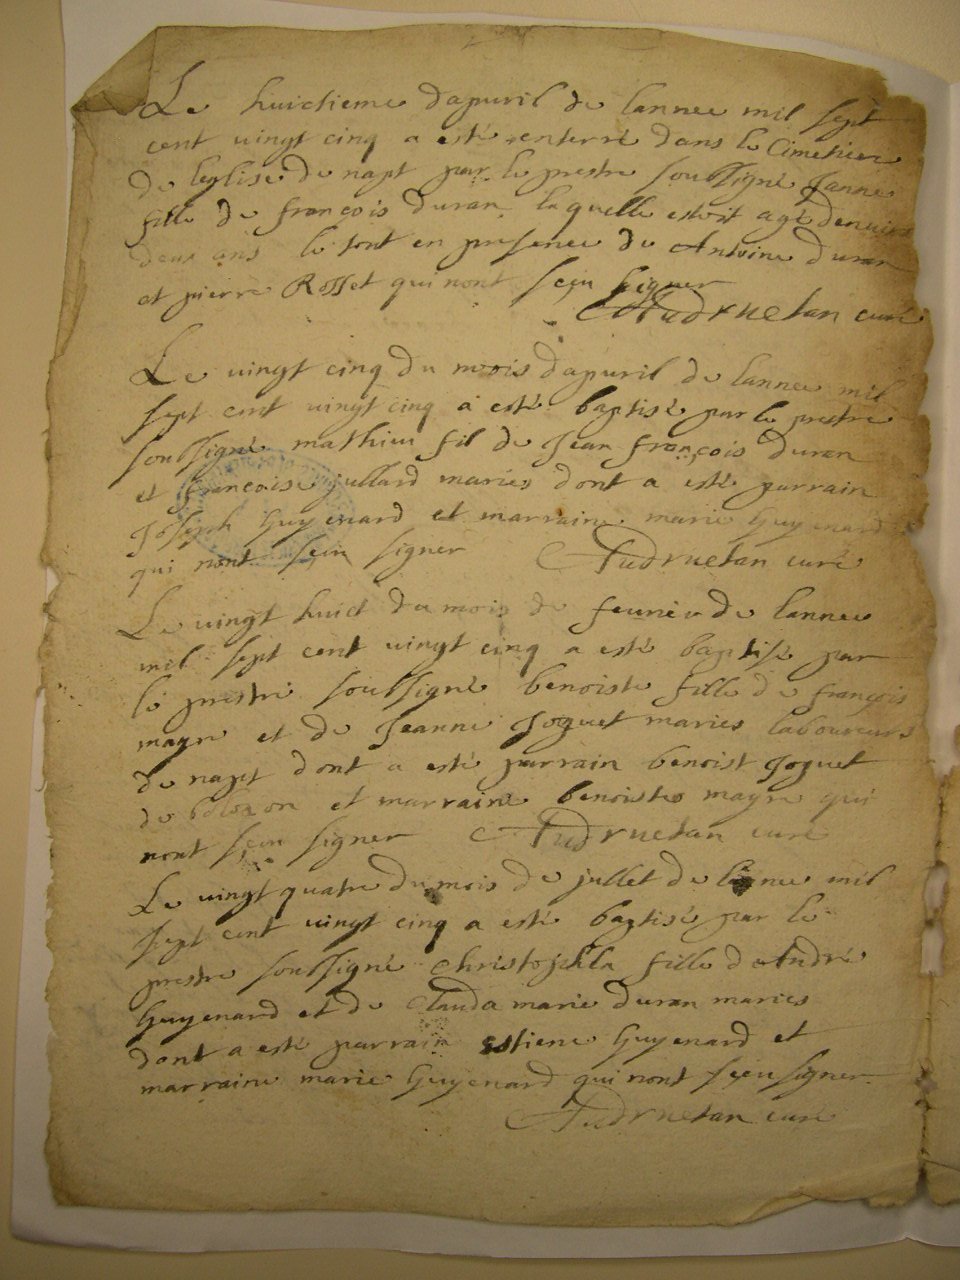 Le huictieme dapuril de lannee mil sept
cent vingt cinq a esté enterré dans le Cimetiere
de leglise de napt par le prestre soubsigné Janne
fille de françois duran laquelle estoit agé denuiron
deux ans le tout en presence de Antoine duran
et pierre Rosset qui nont sçeu signer
Audruetan curé
Le vingt cinq du mois dapuril de lannee mil
sept cent vingt cinq a esté baptisé par le prestre
soubsigné mathieu fil de Jean françois duran
et françoise jullard maries dont a esté parrain
Joseph Guyenard et marraine marie Guyenard
qui nont sceu signer Audruetan curé
Le vingt huict du mois de feurier de lannee
mil sept cent vingt cinq a esté baptisé par
le prestre soubsigné benoiste fille de françois
mayre et de Jeanne Joguet maries laboureurs
de napt dont a esté parrain benoist Joguet
de bolozon et marraine benoiste mayre qui
nont sçeu signer Audruetan curé
Le vingt quatre du mois de jullet de lannee mil
sept cent vingt cinq a esté baptisé par le
prestre soubsigné christophla fille d Andre
Guyenard et de Clauda marie duran maries
dont a esté parrain estiene Guyenard et
marraine marie Guyenard qui nont sçeu signer
Audruetan curé